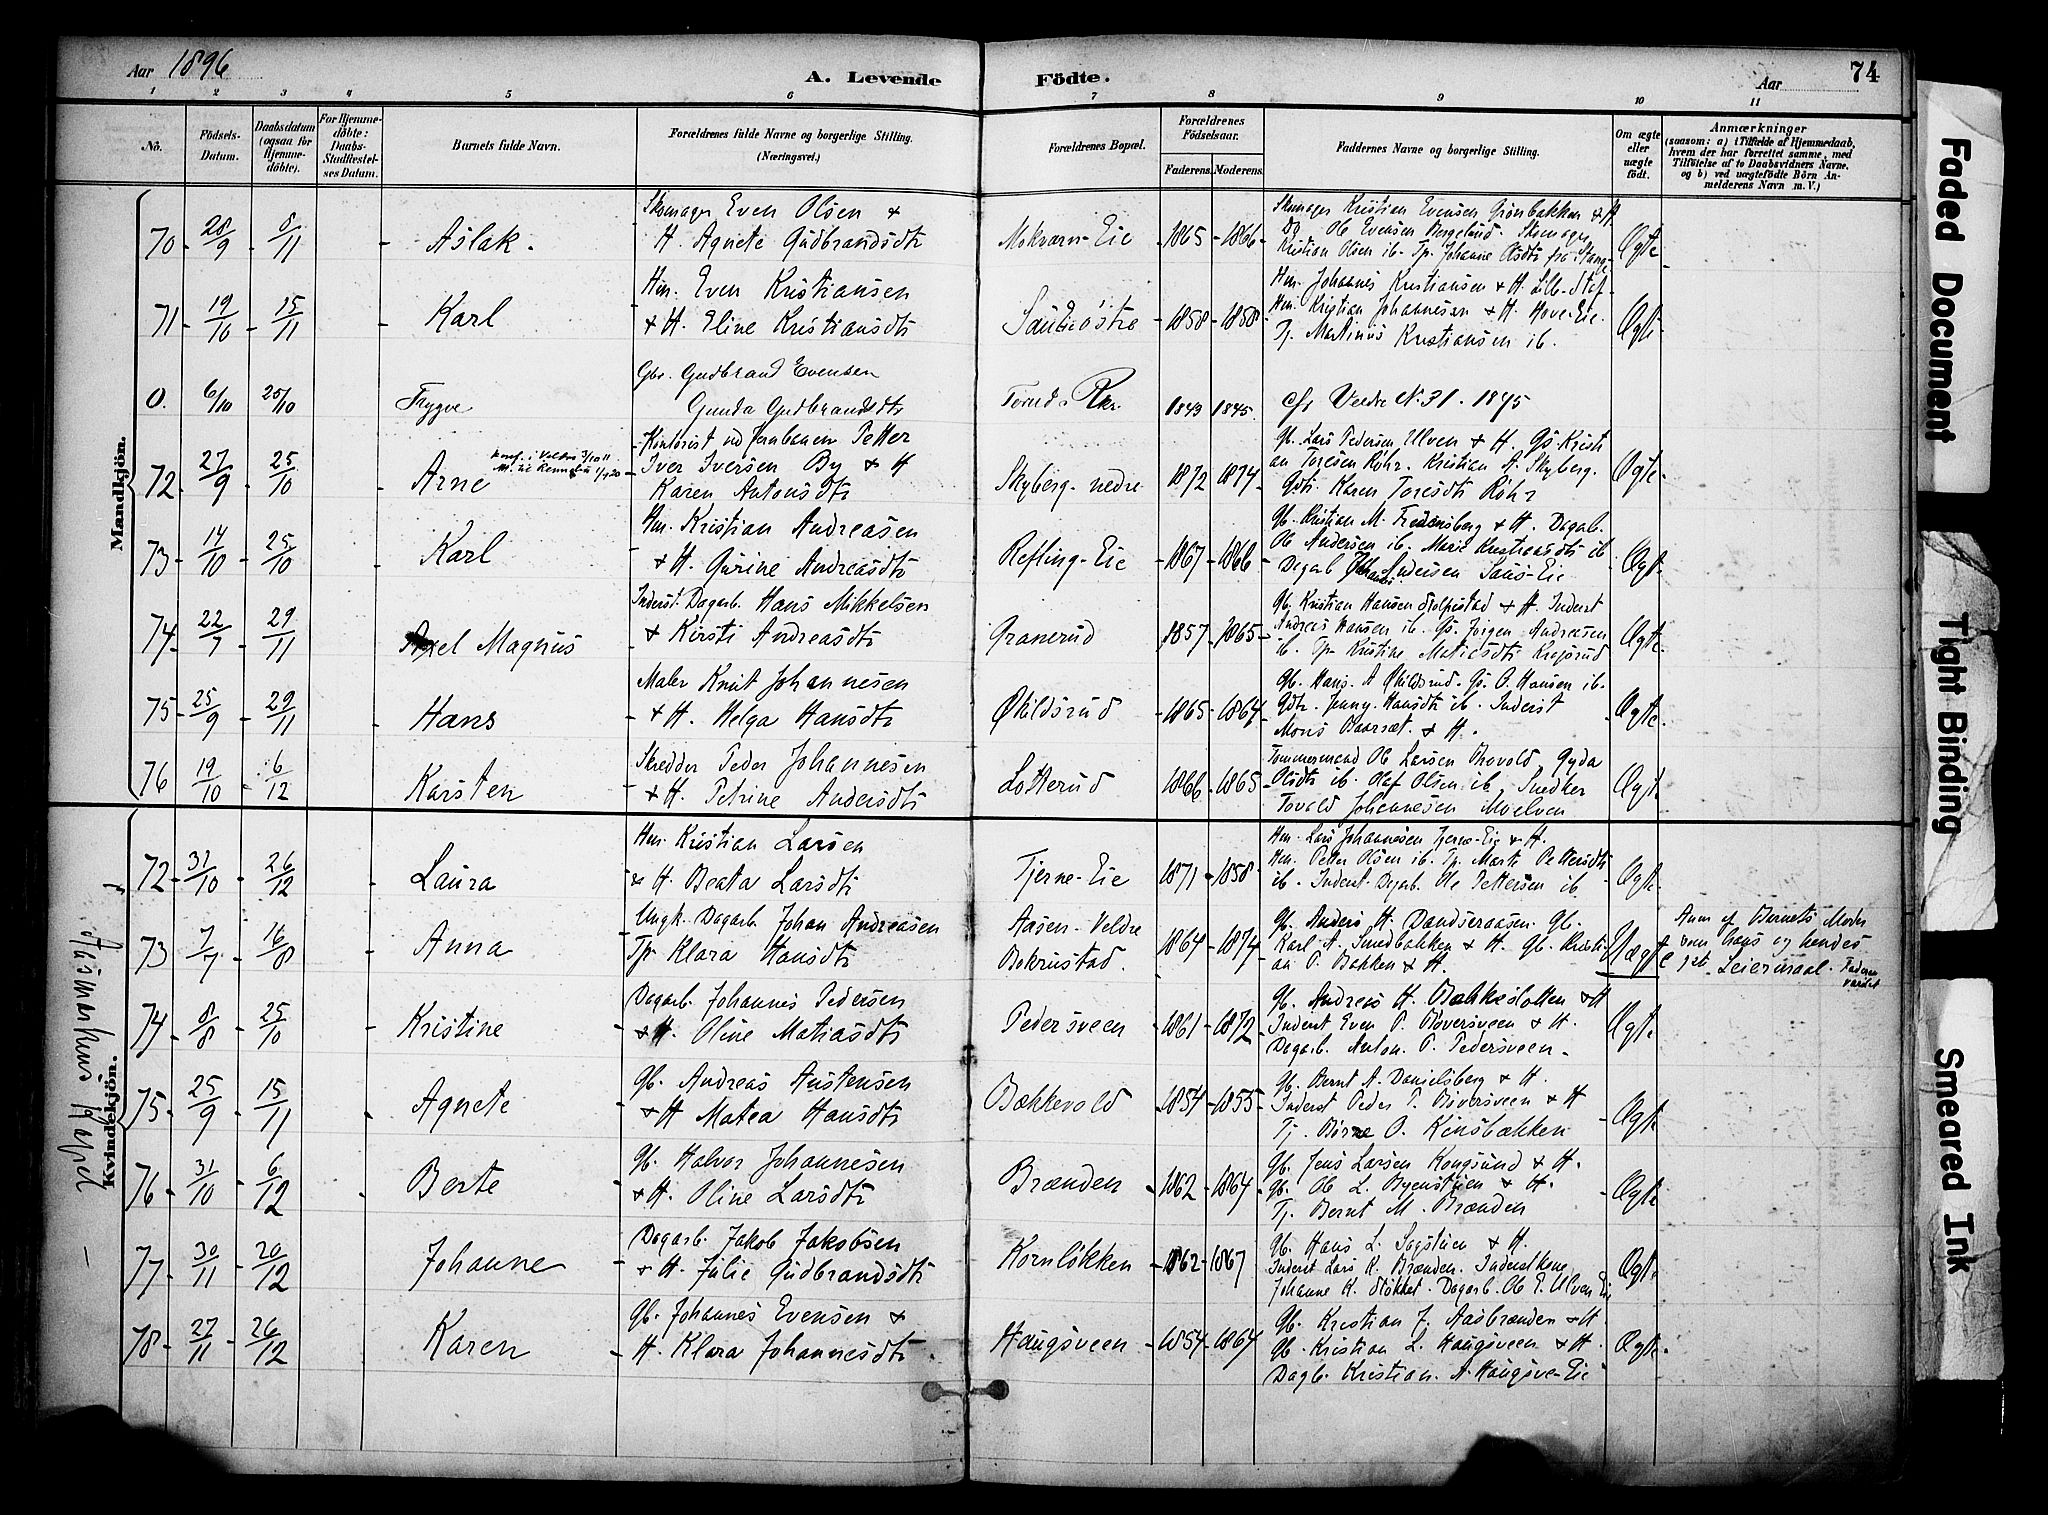 Aar 1896
A. Levende Födte.
Aar
74
1 2 3 4 5 6 7 8 9 10 11
No.
Födsels-Datum.
Daabsdatum (ogsaa for Hjemmedöbte).
For Hjemmedöbte: Daabs-Stadfæstelses Datum.
Barnets fulde Navn.
Forældrenes fulde Navne og borgerlige Stilling. (Næringsvei.)
Forældrenes Bopæl.
Forældrenes Födselsaar.
Faderens. Moderens.
Faddernes Navne og borgerlige Stilling.
Om ægte eller uægte födt.
Anmærkninger
(saasom: a) i Tilfælde af Hjemmedaab, hvem der har forrettet samme, med Tilföielse af to Daabsvidners Navne. og b) ved uægtefödte Börn Anmelderens Navn m. V.)
Mandkjön.
Skomager Even Olsen &
70 - 28/9 - 8/11 - Aslak - H. Agnete Gudbrandsdtr
Mokværn-Eie - 1865 - 1866
Skomager Kristian Evensen Grönbakken & H.
Do Ole Evensen Bergelund. Skomager
Kristian Olsen ib. Tp. Johanne Olsdtr fra Stange
Ægte
Hm. Even Kristiansen
71 - 19/10 - 15/11 - Karl & H. Eline Kristiansdtr
1858 - 1858
Hm. Johannes Kristiansen & H.
Hm. Kristian Johannesen & H. Hove-Eie.
Tj. Martinus Kristiansen ib.
Ægte
Gbr. Gudbrand Evensen
0. 6/10 25/10 Trygve Gunda Gudbrandsdtr
1843 1845. cfr Veldre N. 31. 1895
Kontorist ved Jernbanen Petter
72 - 27/9 - 25/10 - Arne Iver Iversen By & H
Karen Antonsdtr
Skyberg-nedre 1872 - 1874
Gb. Lars Pedersen Ulven & H. Gs. Kristi
an Toresen Röhr. Kristian A. Skyberg.
Gdtr. Karen Toresdtr Röhr
Ægte
Hm. Kristian Andreasen
73 - 14/10 - 25/10 - Karl & H. Gurine Andreasdtr
Refling-Eie - 1867 - 1866
Gb. Kristian M. Fredensberg & H. Dagarb.
Ole Andersen ib. Marie Kristiansdtr ib
Dagarb Johannes Andersen Saus-Eie
Ægte
Inderst. Dagarb. Hans Mikkelsen
74 - 22/7 - 29/11 - Axel Magnus & Kirsti Andreasdtr
Granerud - 1857 - 1865
Gb. Kristian Hansen Stolpestad & H. Inderst
Andreas Hansen ib. Gs. Jörgen Andreasen
ib. Tp. Kristine Matiasdtr
Ægte
Maler Knut Johannesen
75 - 25/9 - 29/11 - Hans & H. Helga Hansdtr
Ökildsrud - 1865 - 1864
Gb. Hans A Ökildsrud. Gs. O. Hansen ib.
Gdtr. Jenny Hansdtr ib. Inderst
Mons Baarset. & H.
Ægte
Skredder Peder Johannesen
76 19/10 - 6/12 - Karsten & H. Petrine Andersdtr
Lotterud - 1866 - 1865
Tömmermand Ole Larsen Brovold. Gyda
Olsdtr ib. Olaf Olsen ib. Snedker
Tovald Johannesen Moelven
Ægte
Aasmarkens Kapel
Kvindekjön.
Hm. Kristian Larsen
72 - 31/10 - 26/12 - Laura & H. Beata Larsdtr
Tjerne-Eie 1871 - 1858
Hm. Lars Johannesen Tjerne-Eie & H.
Hm. Petter Olsen ib. Tp. Marte Pettersdtr
ib. Inderst Dagarb. Ole Pettersen ib.
Ægte
Ungk. Dagarb. Johan Andreasen
73 - 7/7 - 16/8 - Anna Tp. Klara Hansdtr
Aasen-Veldre
Bekrustad. 1864 - 1874
Gb. Anders H. Dandseraasen. Gb.
Karl A. Smedbakken & H. Gb. Kristi-
an P. Bakken & H.
Uægte
Anm. af Barnets Moder
som hans og hendes
1ste Leiermaal.
Dagarb. Johannes Pedersen
74 - 8/8 - 25/10 - Kristine & H. Oline Matiasdtr
Pedersveen - 1861 - 1872
Gb. Andreas H. Bækkeslotten & H
Inderst Even P. Böversveen & H.
Dagarb. Anton. P. Pedersveen
Ægte
Gb. Andreas Austensen
75 - 25/9 - 15/11 - Agnete & H Matea Hansdtr
Bækkevold - 1854 - 1855
Gb. Bernt A. Danielsberg & H.
Inderst Peder P. Böversveen & H
Tj. Börre O. Kinsbækken
Ægte
Gb. Halvor Johannesen
76 - 31/10 - 6/12 - Berte & H. Oline Larsdtr
Brænden - 1862 - 1864
Gb. Jens Larsen Kongsund & H.
Gb. Ole L. Byenstuen & H.
Tj. Bernt M. Brænden
Ægte
Dagarb. Jakob Jakobsen
77 - 30/11 - 20/12 - Johanne & H. Julie Gudbrandsdtr
Kornlökken 1862 - 1867
Gb. Hans L. Sagstuen & H.
Inderst Lars K. Brænden. Inderstkone
Johanne K. Stökket. Dagarb. Ole E. Ulven Eie
Ægte
Gb. Johannes Evensen &
78 - 27/11 - 26/12 Karen H. Klara Johannesdtr
Haugsveen - 1854 - 1864
Gb. Kristian J. Aasbrænden & H
Gb. Kristian L. Haugsveen & H.
Dagb. Kristian. A. Haugsve-Eie
Ægte
Faded Document
Tight Binding
Smeared Ink